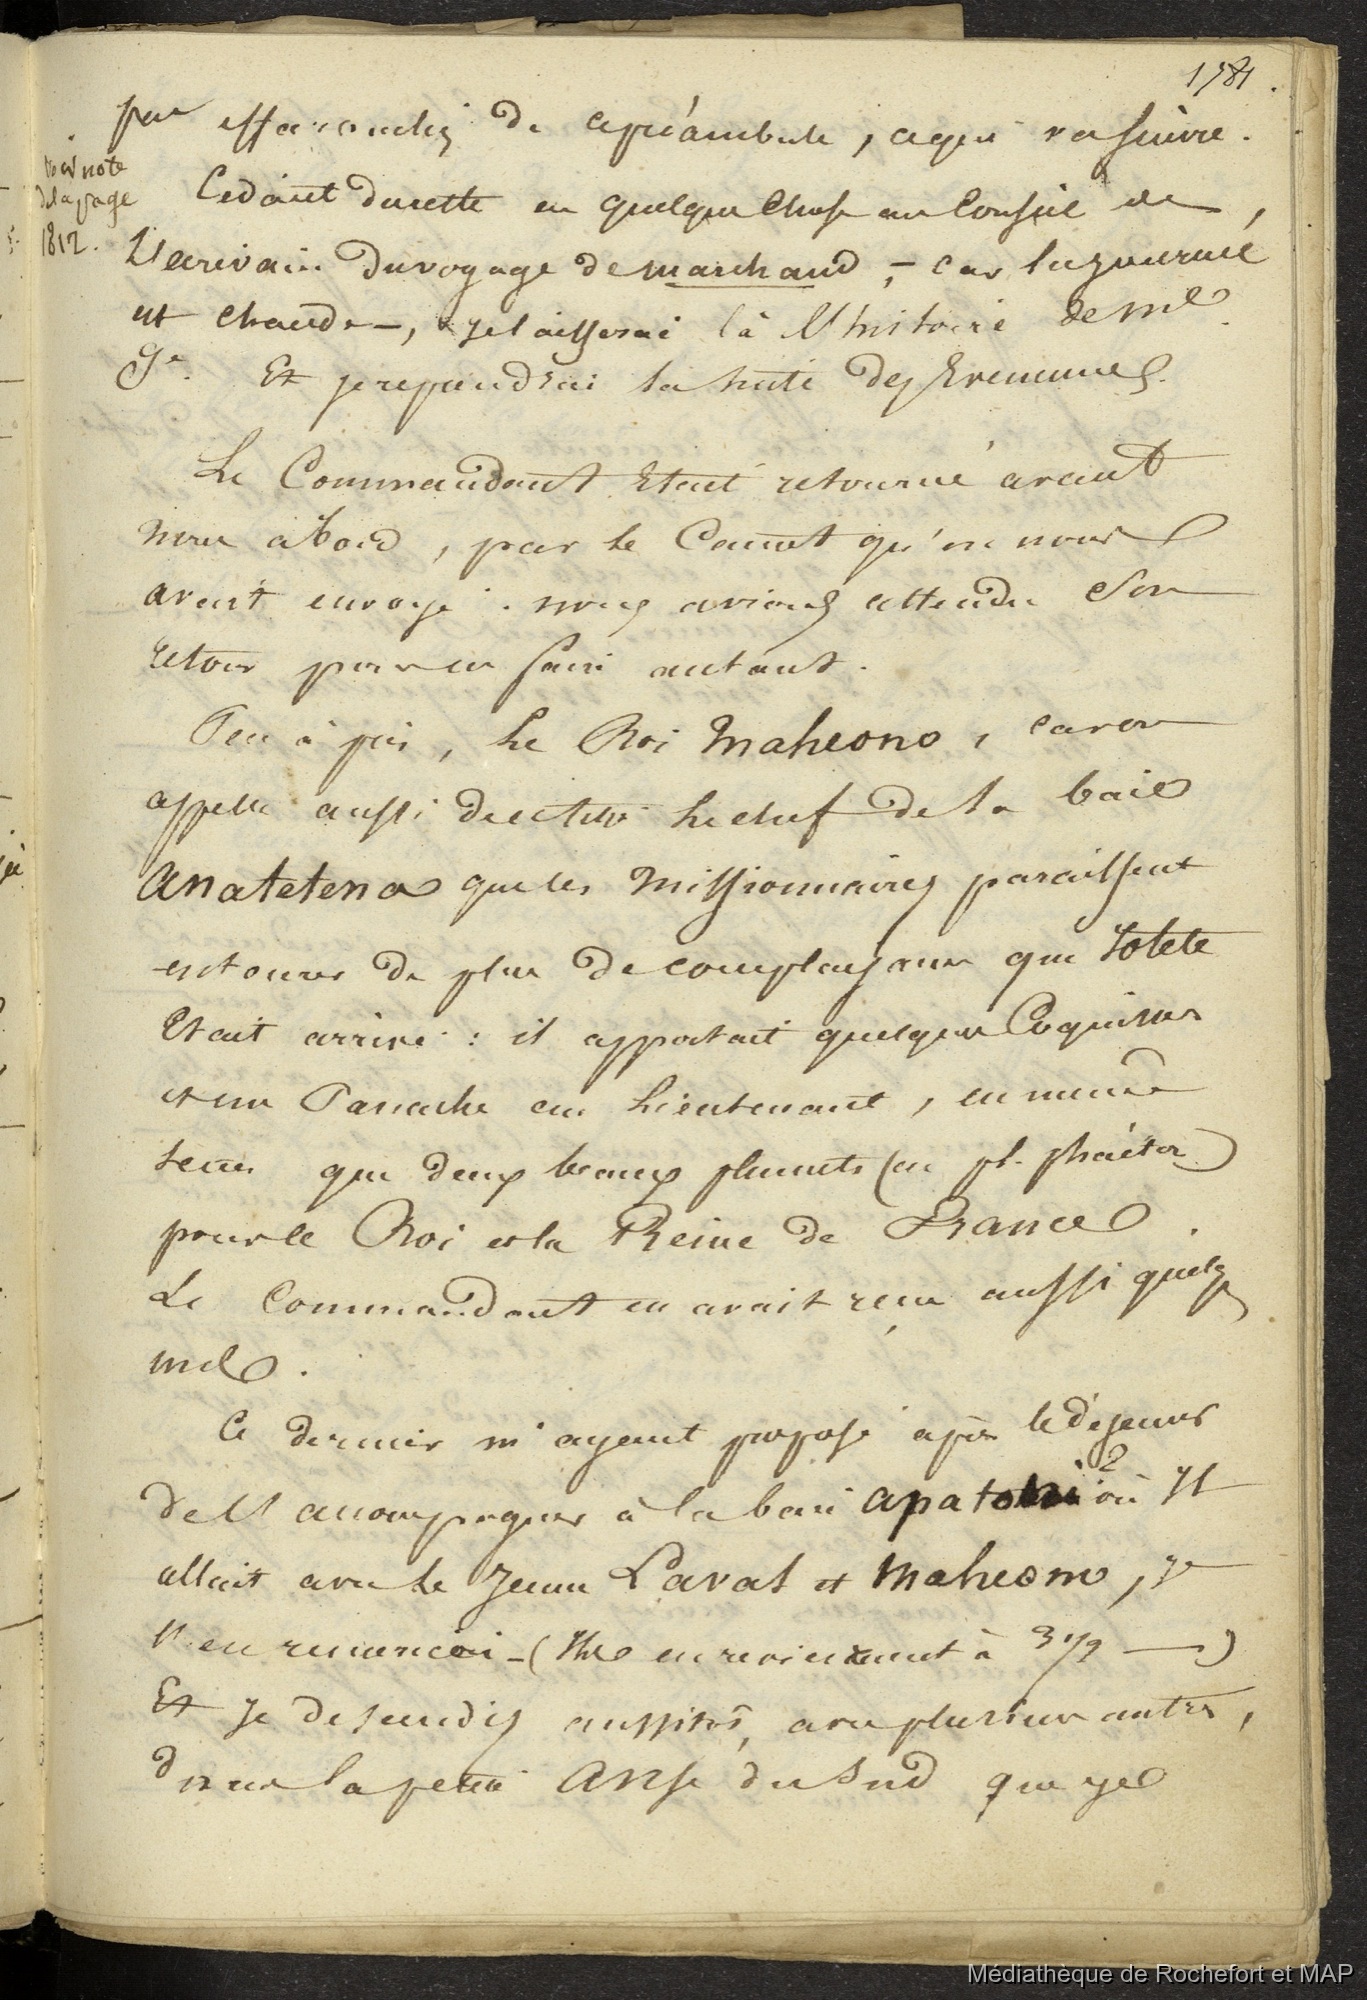 1781.
pas effarouchés de ce préambule, ce qui va suivre.
Voir note
de la page
1812.
Cedant du reste en quelque chose au Conseil de
l'ecrivain du voyage de marchand, - car la journée
est chaude -, je laisserai là l'histoire de Mlle
G. Et je reprendrai la suite des Evenements.
Le Commandant Etait retourné avant
nous à bord, par le Canot qu'on nous
avait envoyé. nous avions attendu Son
retour pour en faire autant.
Peu à près, Le Roi Maheono, car on
appelle aussi de ce titre le chef de la baie
Anatetena que les Missionnaires paraissent
entourer de plus de complaisance que Iotete
Etait arrivé : il apportait quelques Coquilles
et un Panache au Lieutenant, en même
tems que deux beaux plumets (en pl. phaéton)
pour le Roi et la Reine de France.
Le Commandant en avait reçu aussi quelq
uns.
Ce dernier m'ayant proposé après le déjeuner
de l'accompagner à la baie apatoni 2 où Il
allait avec le Jeune Laval et Maheono, je
l'en remerciai - (Ils en revienrent à 3 1/2 —)
Et Je descendis aussitôt, avec plusieurs autres,
dans la petite Anse du Sud que je